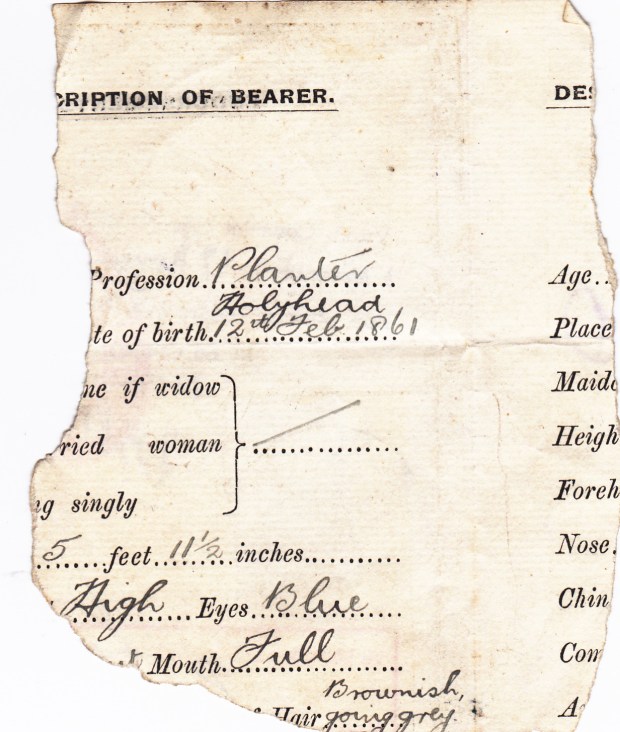 CRIPTION OF BEARER.
Profession Planter
Holyhead
te of birth 12th Feb. 1861
ne if widow
ried woman
ng singly
5 feet 11 1/2 inches
High Eyes Blue
Mouth Full
Brownish,
Hair going grey.
DES
Age
Place
Maide
Heigh
Foreh
Nose.
Chin
Com
A